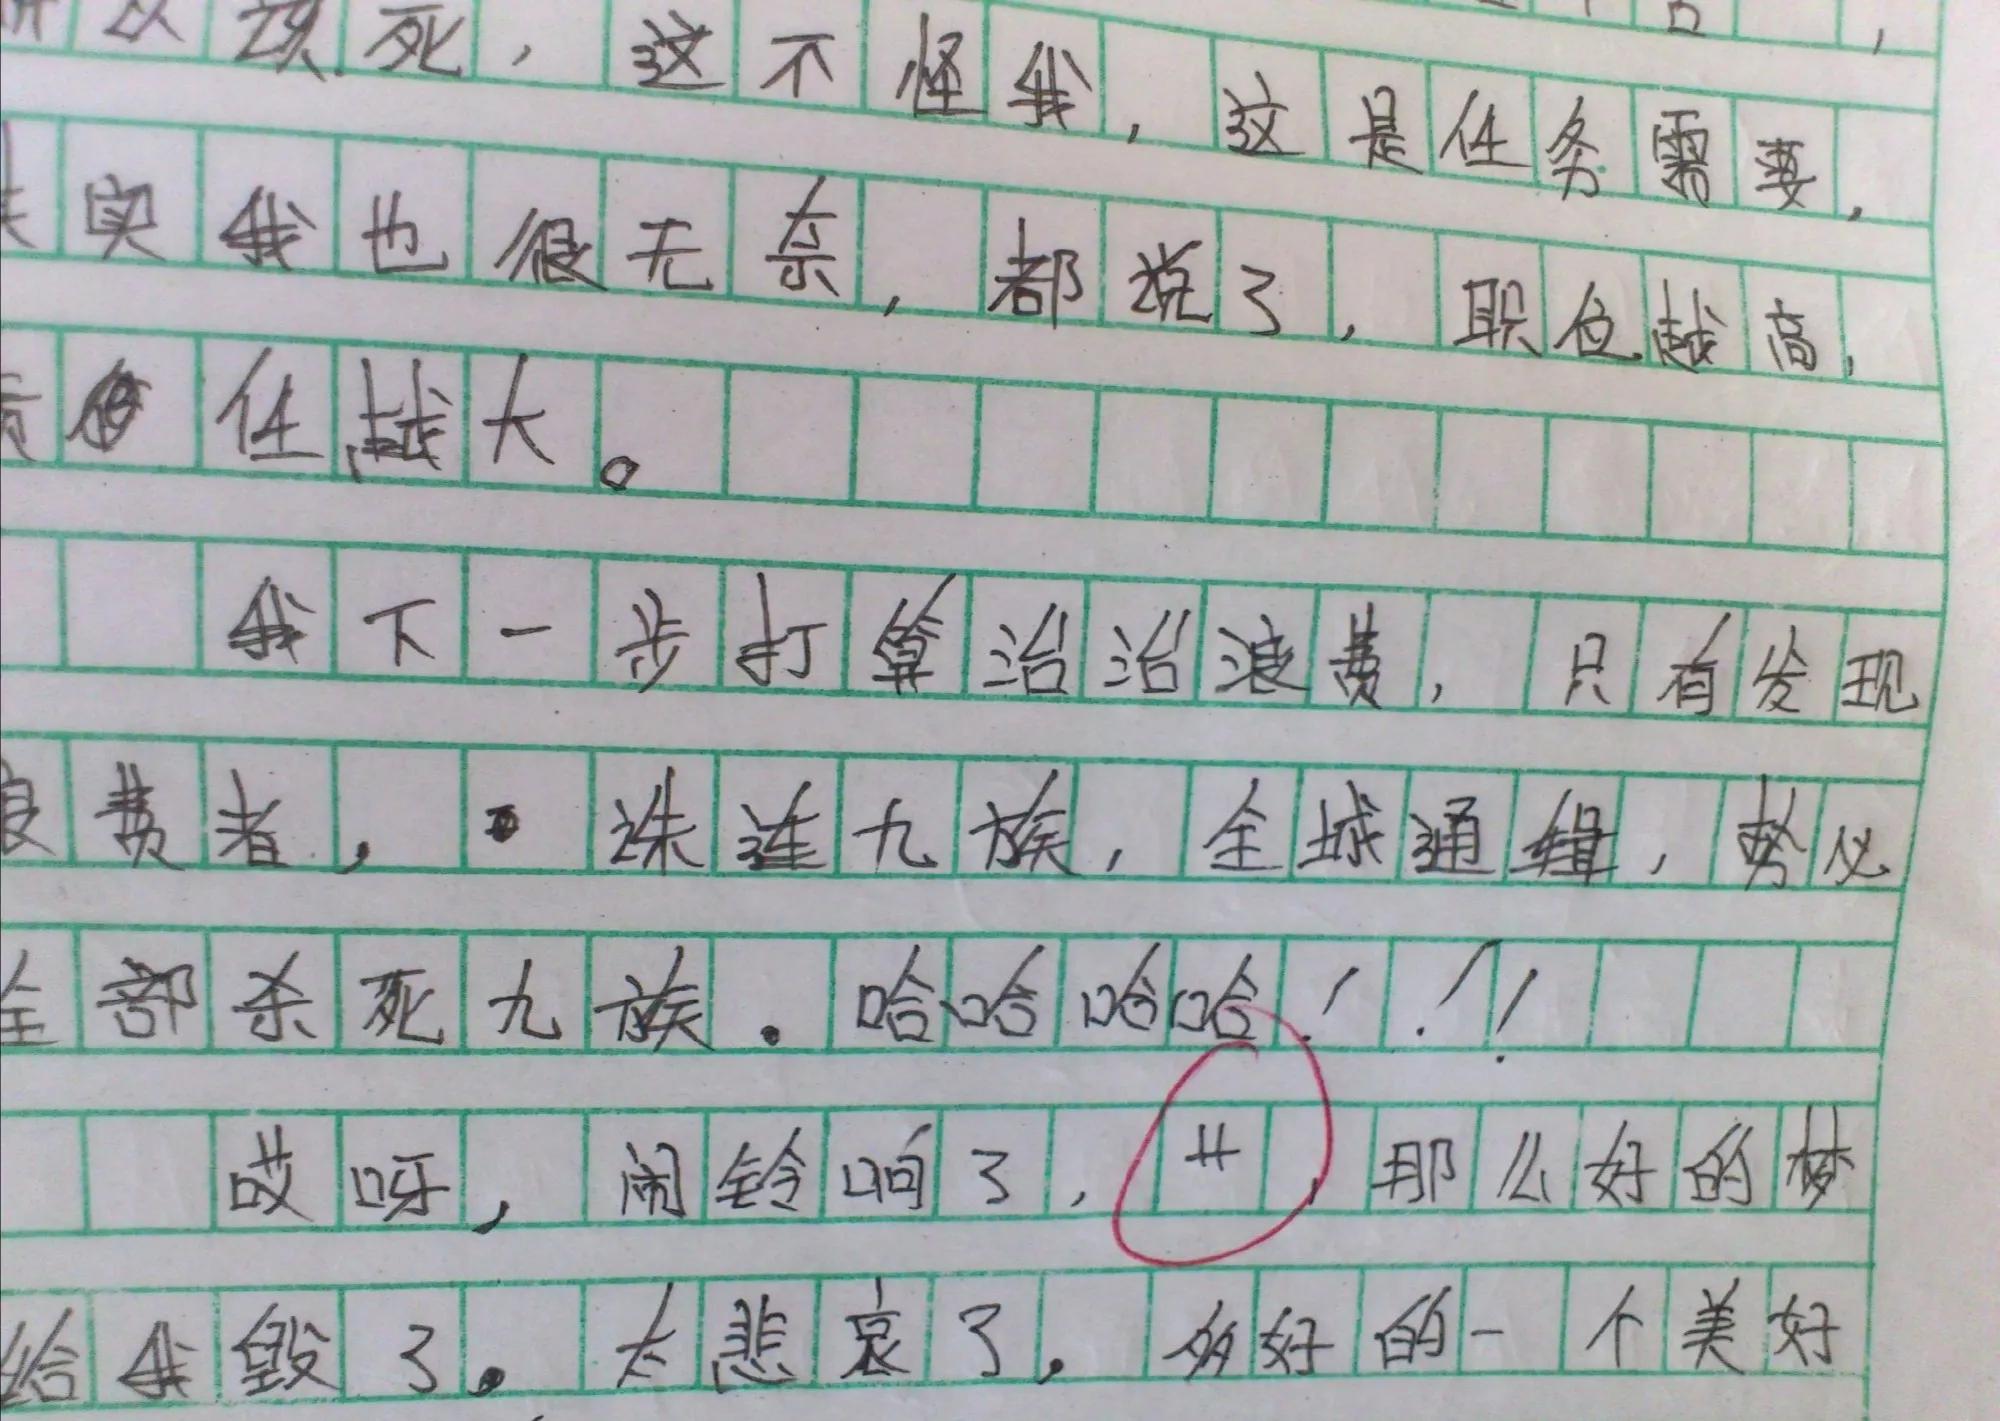 该死，这不怪我，这是任务需要，
实我也很无奈，都说了，职位越高，
任越大。
我下一步打算治治浪费，只有发现
浪费者，诛连九族，全球通缉，势必
全部杀死九族。哈哈哈哈！！！
哎呀，闹铃响了，艹，那么好的梦
给我毁了。太悲哀了。多好的一个美好